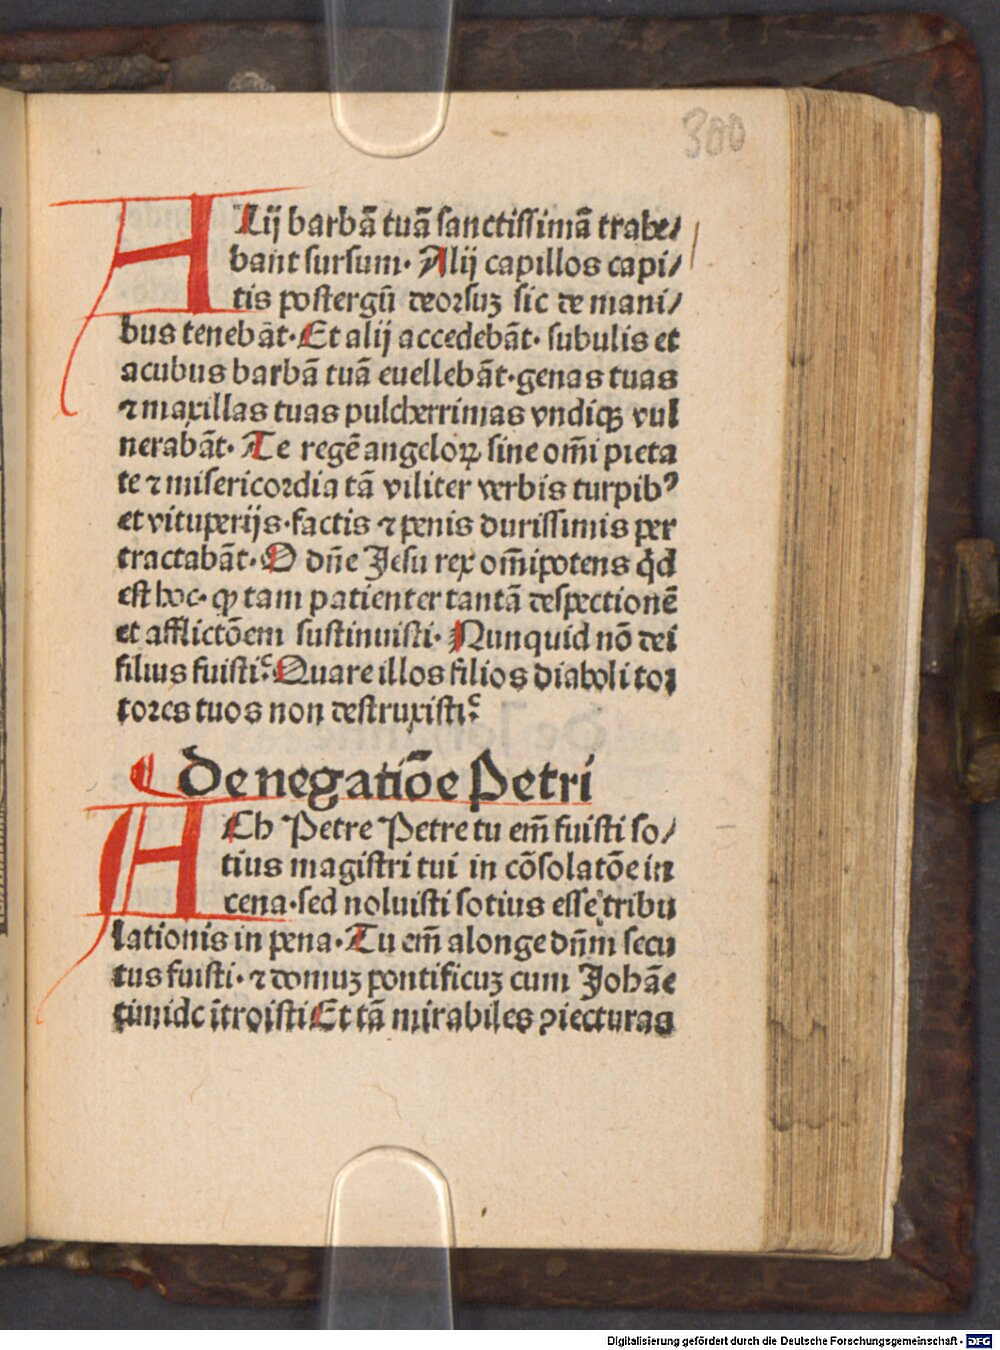 300
ALij barbā tuā sanctissimā trahe/
bant sursum. Alij capillos capi/
tis postergū deorsuꝫ sic de mani/
bus tenebāt. Et alij accedebāt. subulis et
acubus barbā tuā euellebāt. genas tuas
⁊ maxillas tuas pulcherrimas vndiqꝫ vul
nerabāt. Te regē angeloꝝ sine om̄i pieta
te ⁊ misericordia tā viliter verbis turpibꝰ
et vituperijs. factis ⁊ penis durissimis per
tractabāt. O dn̄e Jesu rex om̄ipotens qd̄
est hoc. ꝙ tam patienter tantā despectionē
et afflictōem sustinuisti. Nunquid nō dei
filius fuisti? Quare illos filios diaboli tor
tores tuos non destruxisti?
De negatiōe Petri
ACh Petre Petre tu em̄ fuisti so/
tius magistri tui in cōsolatōe in
cena. sed noluisti sotius esse tribu
lationis in pena. Tu em̄ alonge dn̄m secu
tus fuisti. ⁊ domuꝫ pontificuꝫ cum Johāe
timide ītroisti Et tā mirabiles ꝯiecturas
Digitalisierung gefördert durch die Deutsche Forschungsgemeinschaft - DFG